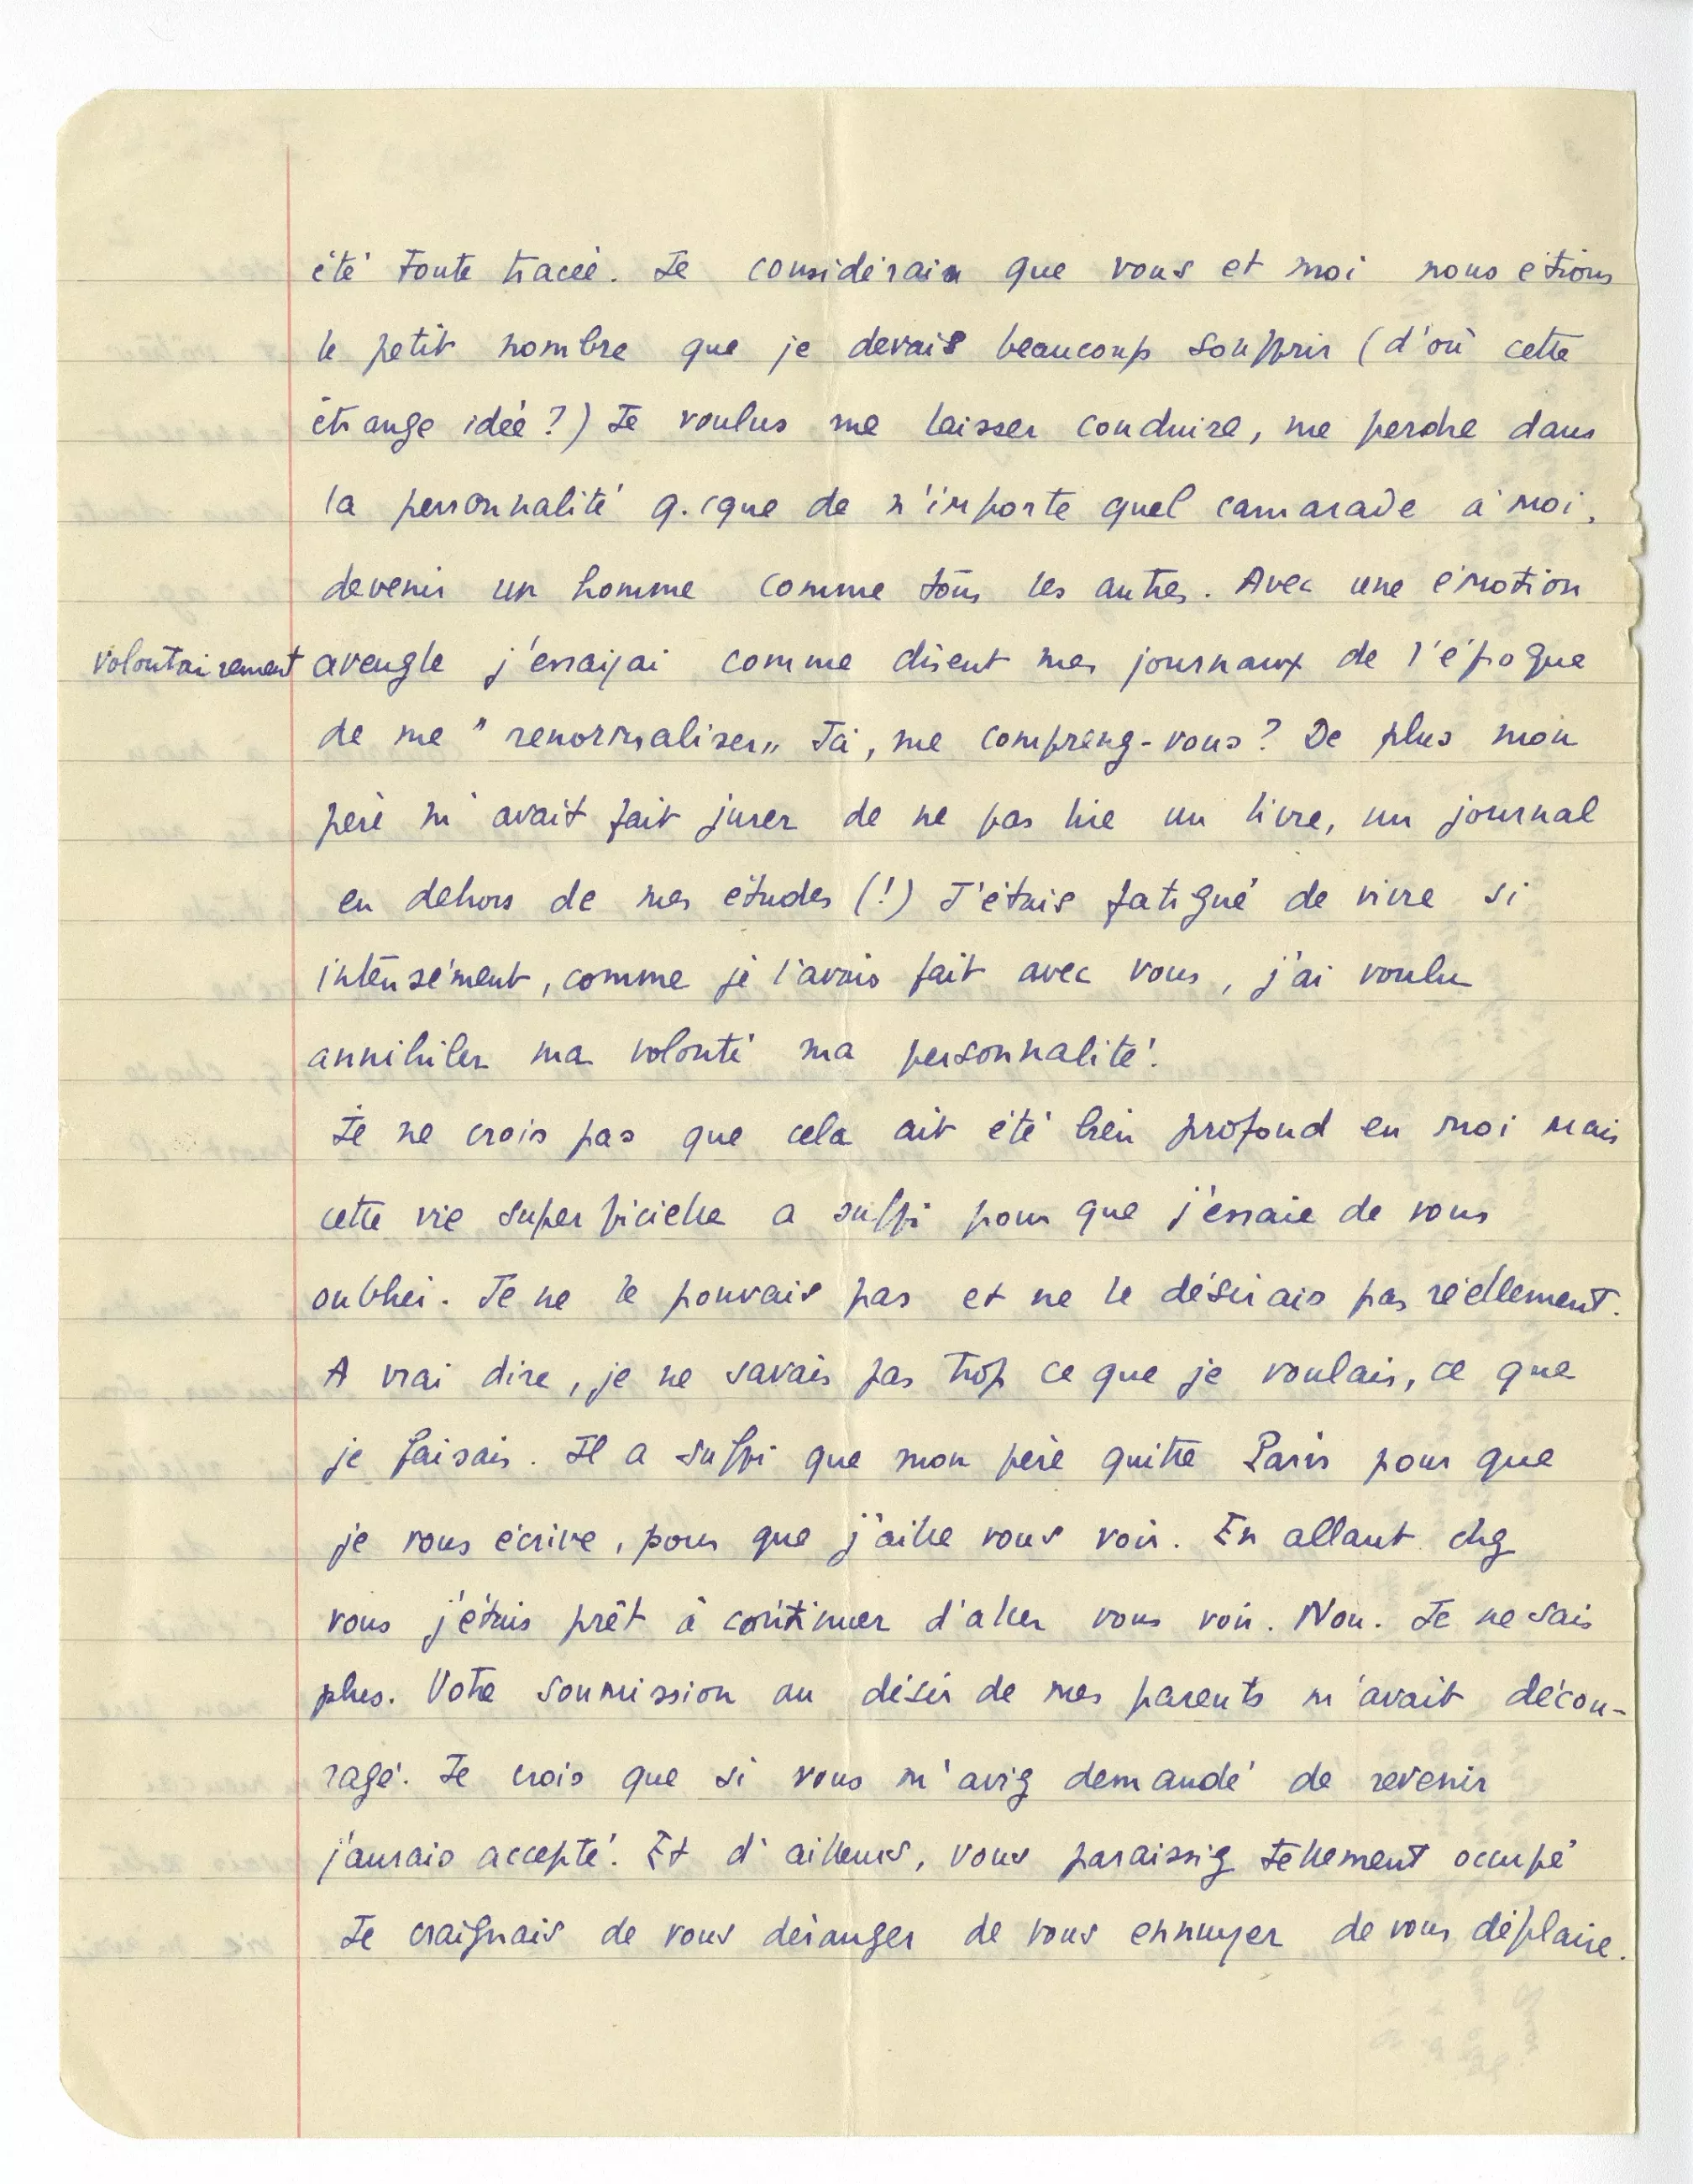 été toute tracée. Je considérais que vous et moi nous étions
le petit nombre que je devais beaucoup souffrir (d'où cette
étrange idée ?) Je voulus me laisser conduire, me perdre dans
la personnalité q.cque de n'importe quel camarade à moi,
devenir un homme comme tous les autres. Avec une émotion
volontairement aveugle j'essayai comme disent mes journaux de l'époque
de me "renormaliser" Ja, me comprenez-vous ? De plus mon
père m'avait fait jurer de ne pas lire un livre, un journal
en dehors de mes études (!) J'étais fatigué de vivre si
intensément, comme je l'avais fait avec vous, j'ai voulu
annihiler ma volonté ma personnalité.
Je ne crois pas que cela ait été bien profond en moi mais
cette vie superficielle a suffi pour que j'essaie de vous
oublier. Je ne le pouvais pas et ne le désirais pas réellement.
A vrai dire, je ne savais pas trop ce que je voulais, ce que
je faisais. Il a suffi que mon père quitte Paris pour que
je vous écrive, pour que j'aille vous voir. En allant chez
vous j'étais prêt à continuer d'aller vous voir. Non. Je ne sais
plus. Votre soumission au désir de mes parents m'avait décou-
ragé. Je crois que si vous m'aviez demandé de revenir
j'aurais accepté. Et d'ailleurs, vous paraissiez tellement occupé
Je craignais de vous déranger de vous ennuyer de vous déplaire.